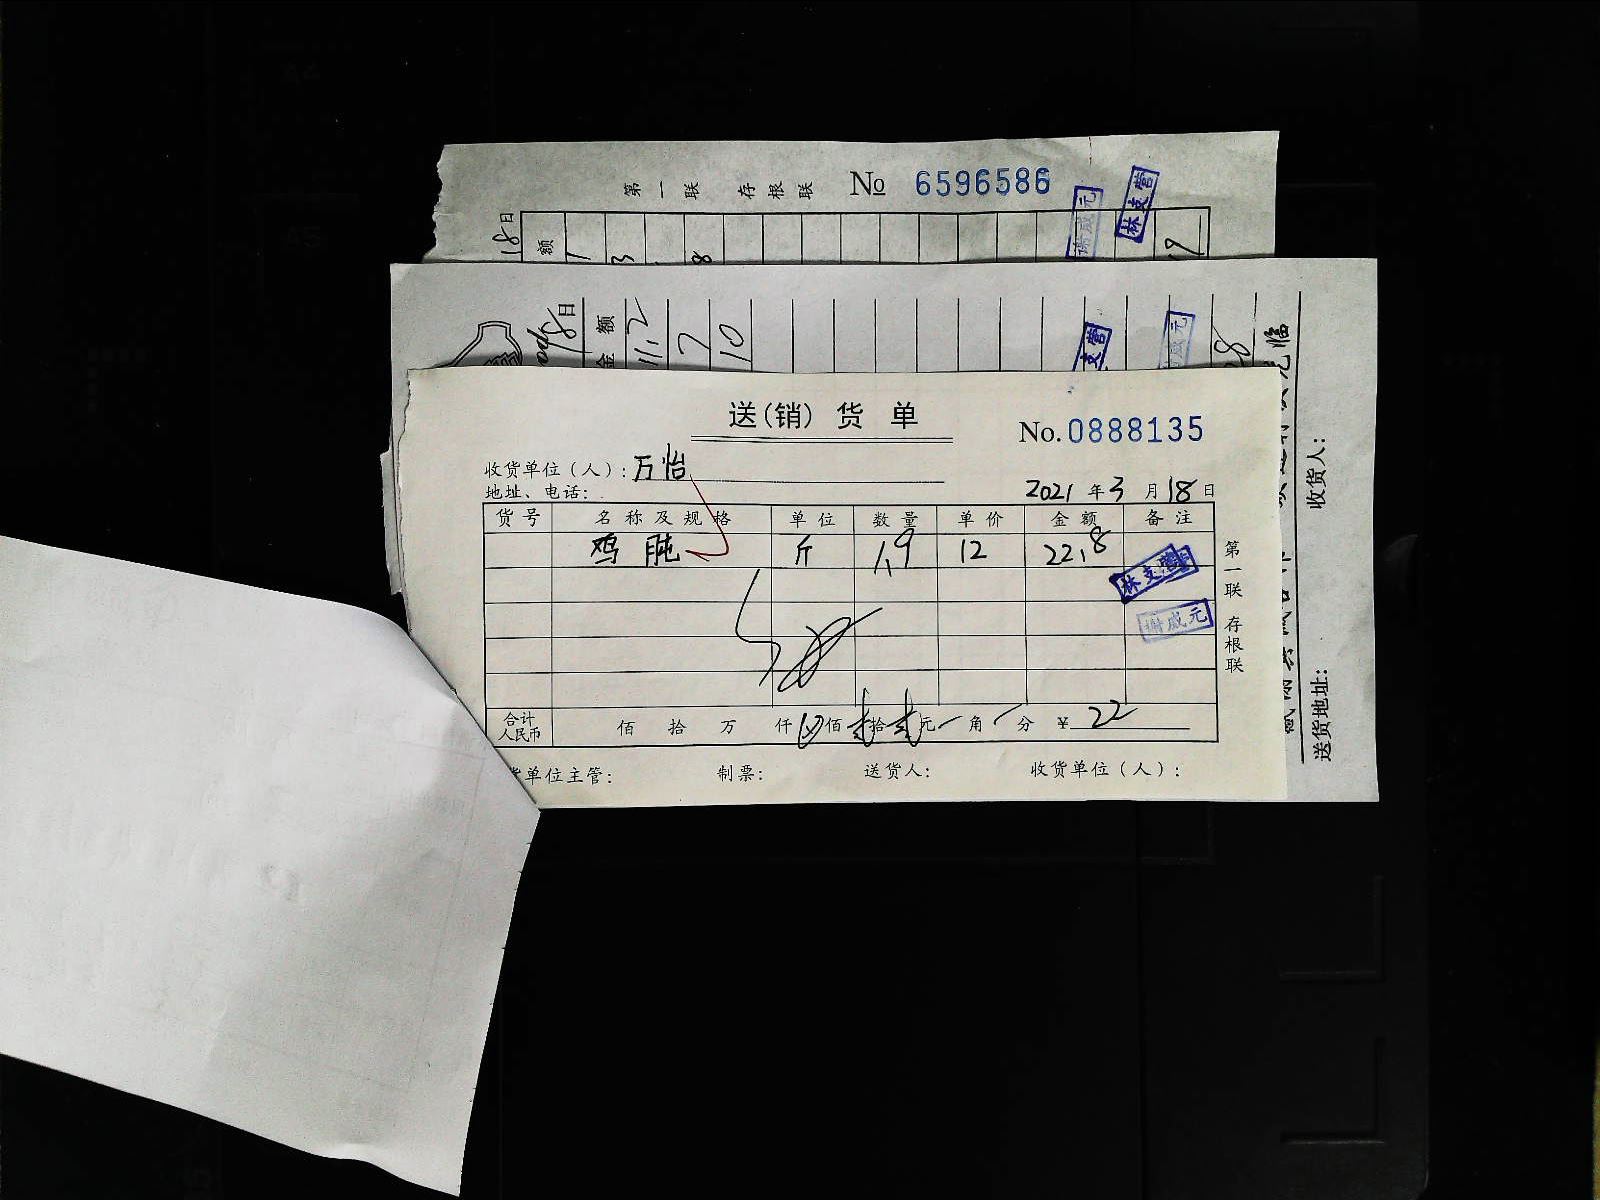 第一联 存根联 No 6596586
谢威元
林支营
18日
额
日
金额
11.2
7
10
支营
威元
28
送(销)货单
No.0888135
收货单位(人):万怡
地址、电话:
2021年3月18日
货号 名称及规格 单位 数量 单价 金额 备注
鸡肫 斤 1.9 12 22.8
林支营
谢威元
第一联 存根联
合计人民币 佰 拾 万 仟 佰 贰拾贰元 角 分 ¥22
货单位主管: 制票: 送货人: 收货单位(人):
收货人:
送货地址: